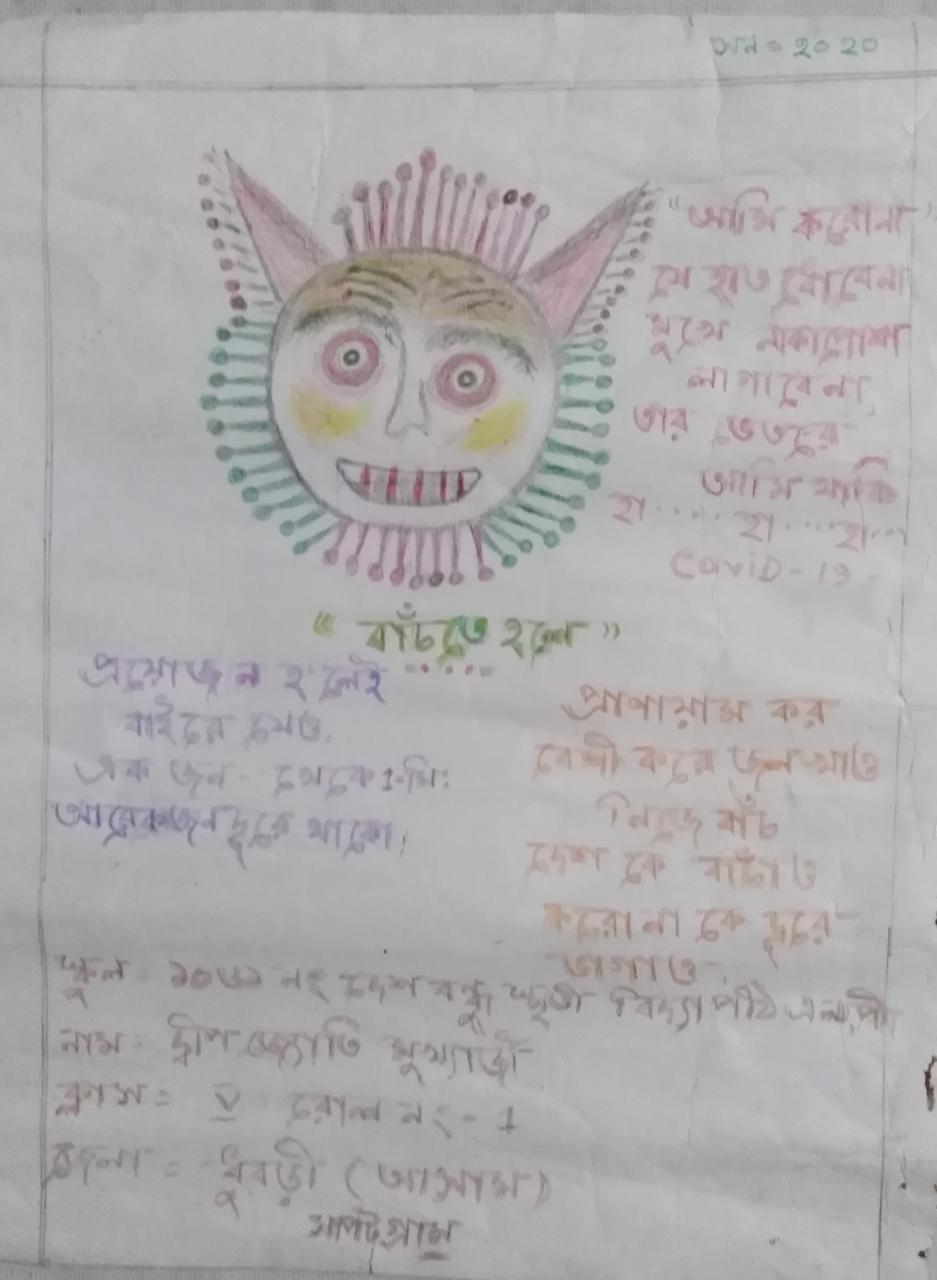 সন = ২০২০
"আমি করোনা
যে হাত ধোবেনা
মুখে নাকাপোশ
লাগাবেনা,
তার ভেতরে
আমি থাকি
হা..... হা..... হা...
COVID-19
"বাঁচতে হলে"
প্রয়োজন হ'লেই
বাইরে যেও,
এক জন থেকে 1-মি:
আরেকজন দূরে থাকো।
প্রাণায়াম কর
বেশী করে জল খাও
নিজে বাঁচ
দেশ কে বাচাঁও
করোনা কে দূরে
ভাগাও
স্কুল ১০৬১ নং দেশ বন্ধু স্মৃতী বিদ্যাপীঠ এল,পী
নাম - দ্বীপ জ্যোতি মুখ্যার্জী
ক্লাস = V রোল নং - 1
জেলা = ধুবড়ী (আসাম)
সাপটগ্রাম